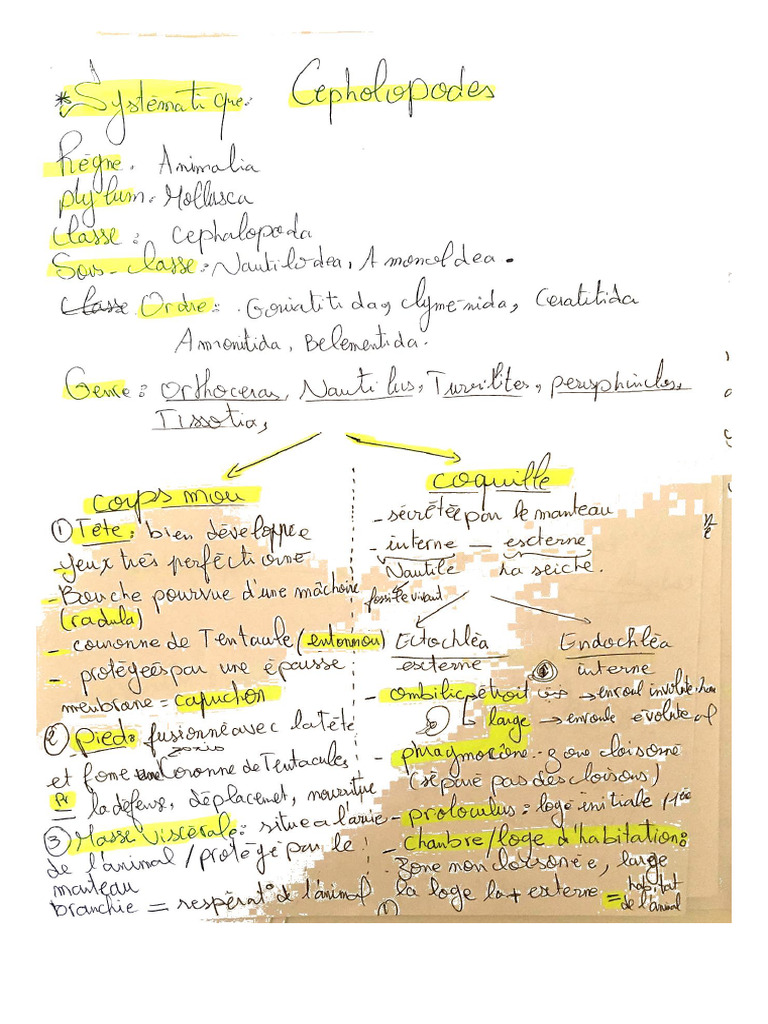 * Systématique: Cepholopodes
Règne. Animalia
phylum. Mollusca
Classe: Cephalopoda
Sous-classe: Nautiloidea, Amonoidea.
Classe Ordre: Goniatitida, clyménida, Ceratitida
Ammonitida, Belementida.
Genre: Orthoceras, Nautilus, Turrilites, perisphinctes,
Tissotia,
corps mou
① Tête: bien développée
- Yeux très perfectionné
- Bouche pourvue d'une mâchoire
(radula)
- couronne de Tentacule (entonnoir)
- protégées par une épaisse
membrane = capuchon
② pied: fusionné avec la tête
et forme une Couronne de Tentacules
= la défense, déplacement, nourriture
③ Masse viscérale: située a l'arrière
de l'animal / protégé par le
manteau
branchie = respérat° de l'animal
coquille
- sécrétée par le manteau
- interne — externe
Nautile la seiche.
fossile vivant
Ectochléa Endochléa
externe interne
- ombilic étroit → enroul involute
large → enroule évolute
- phragmocône - zone cloisonné
(séparé par des cloisons)
- protoculus: loge initiale
- chanbre/loge d'habitation:
zone non cloisonée, large
la loge la + externe = habitat
de l'animal